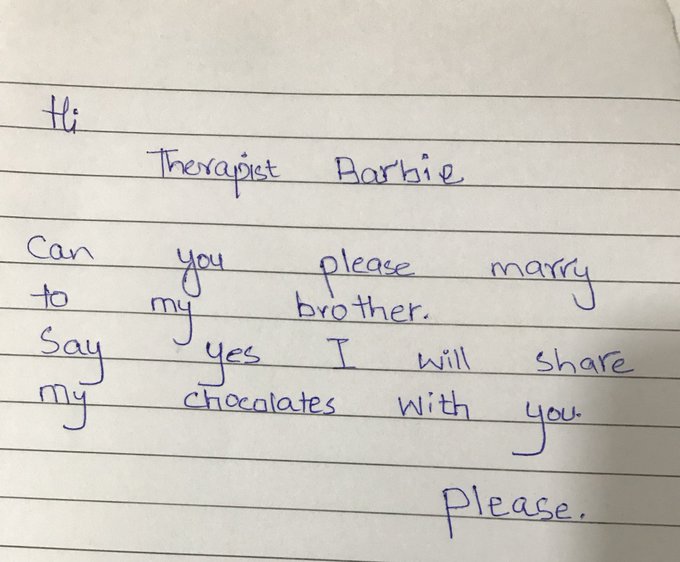 Hi
Therapist Barbie
Can you please marry
to my brother.
Say yes I will share
my chocolates with you.
please.